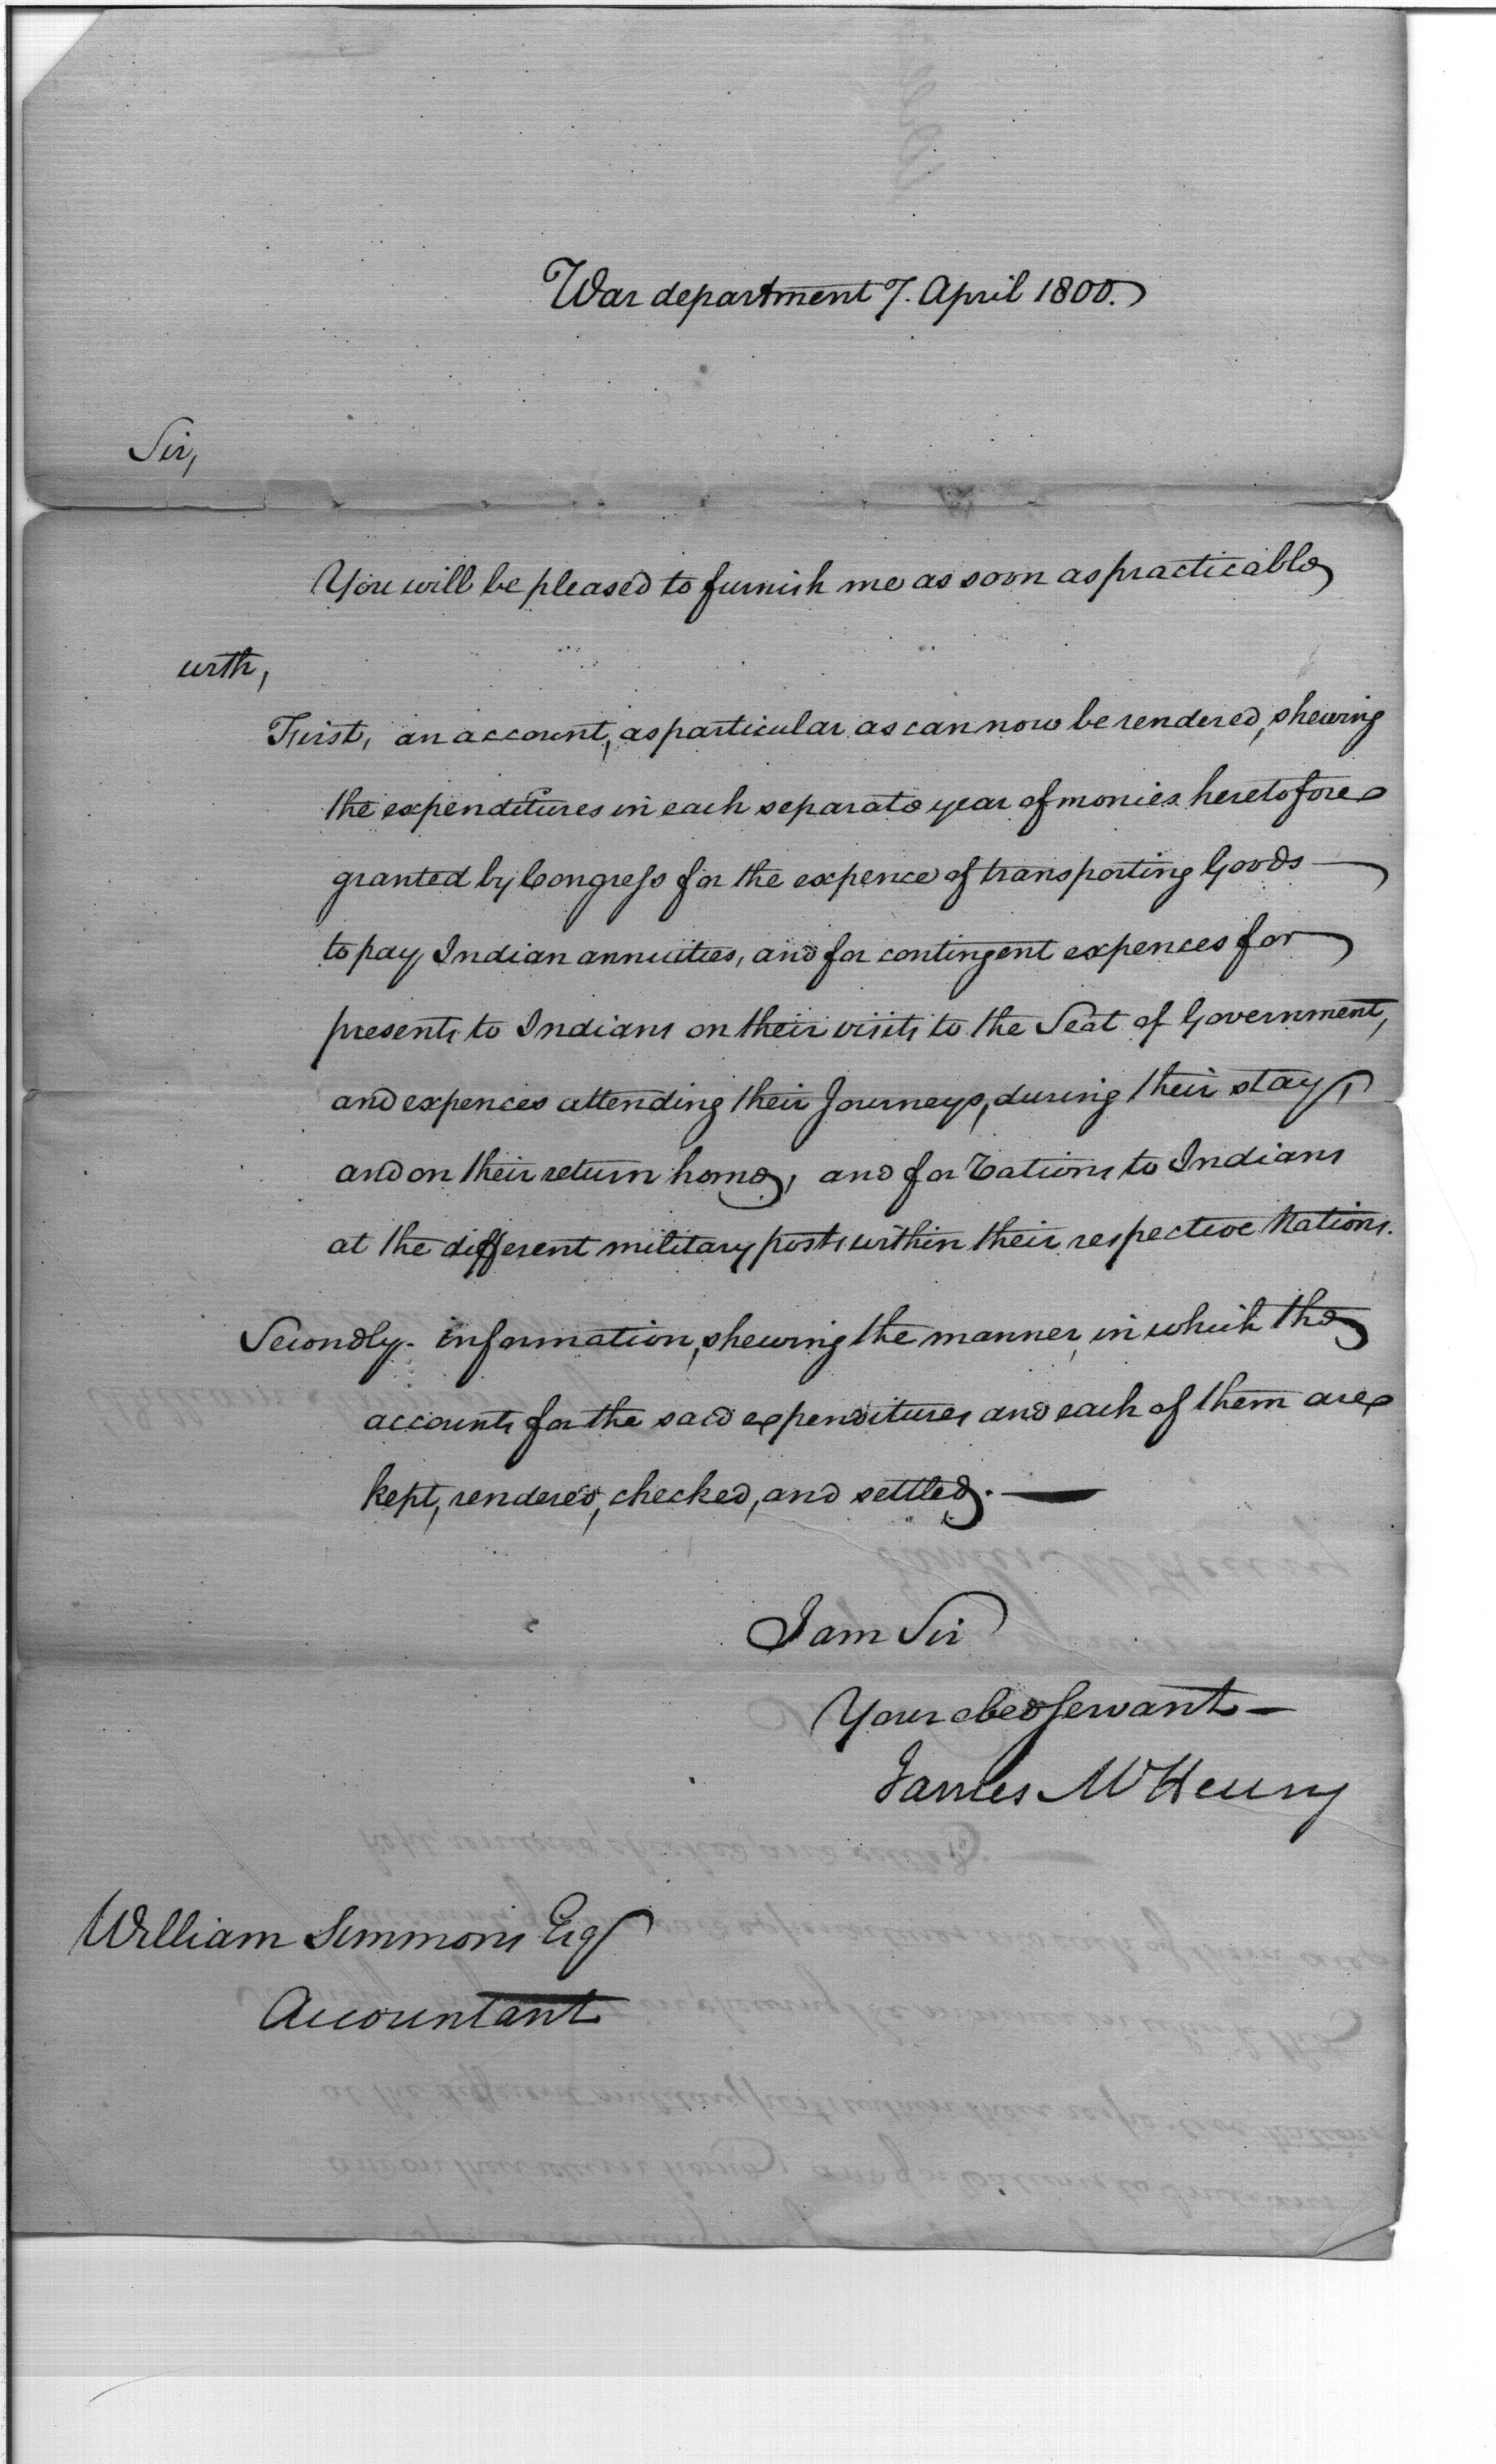 War department 7. April 1800.
Sir,
You will be pleased to furnish me as soon as practicable
with,
First, an account, as particular as can now be rendered, shewing
the expenditures in each separate year of monies heretofore
granted by Congress for the expence of transporting Goods —
to pay Indian annuities, and for contingent expences for
presents to Indians on their visits to the Seat of Government,
and expences attending their Journeys, during their stay,
and on their return home, and for Rations to Indians
at the different military posts within their respective Nations.
Secondly. information, shewing the manner, in which the
accounts for the said expenditures and each of them are
kept, rendered, checked, and settled. —
I am Sir
Your obed Servant —
James McHenry
William Simmons Esq
Accountant